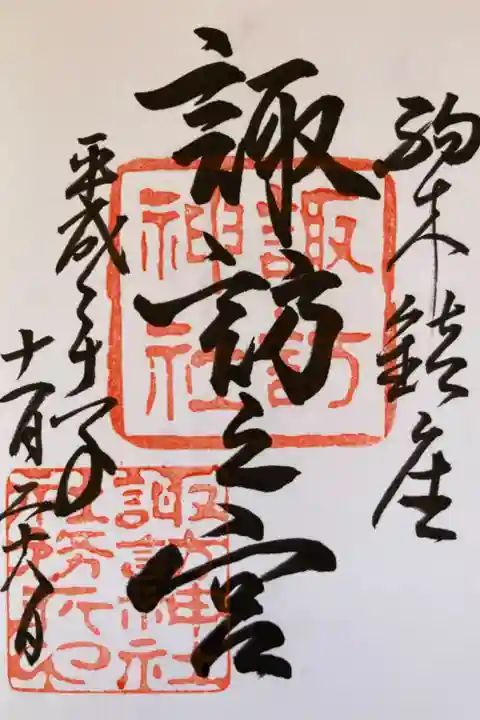 駒木鎮座
諏訪之宮
平成三十年
十一月二十日
諏訪
神社
諏訪神社
社務所印